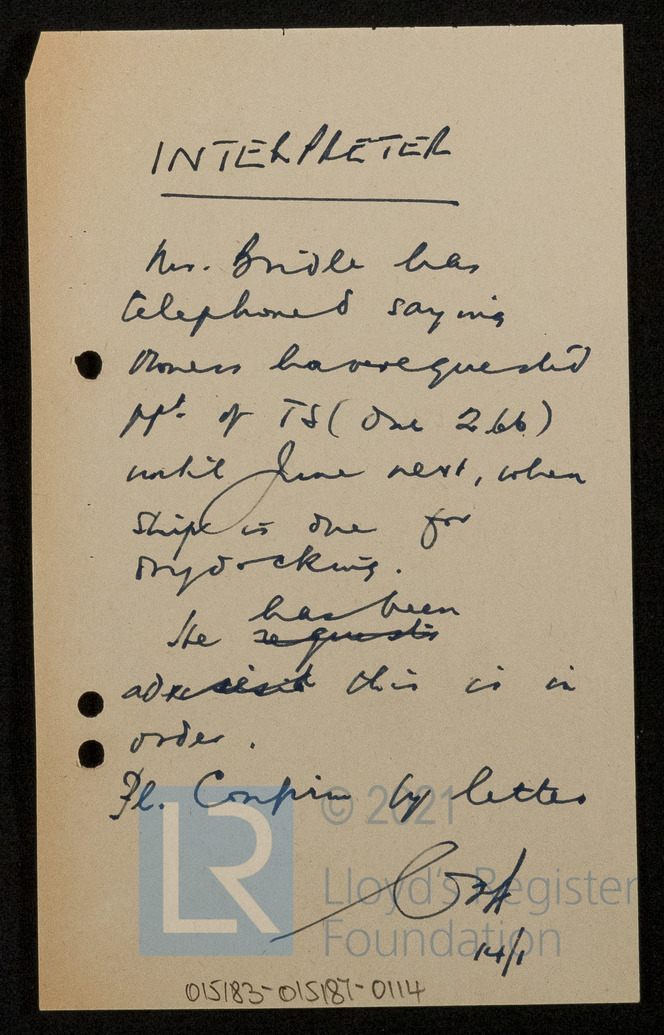 INTERPRETER
Mr. Bridle has
telephoned saying
Owners have requested
ppt. of TS (due 2.66)
until June next, when
ship is due for
drydocking.
has been
He requests
this is in
order.
Pl. Confirm by letter
14/1
LR
© 2021
Lloyd's Register
Foundation
015183-015187-0114